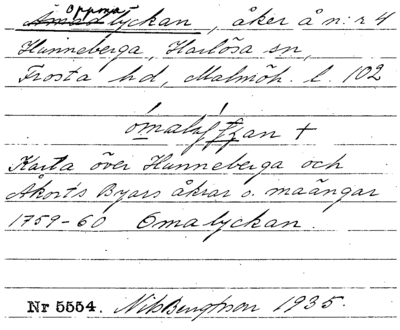 Oppma
Amalyckan, åker å n:r 4
Hunneberga, Harlösa sn,
Frosta hd, Malmöh. l. 102
Karta över Hunneberga och
Åkarts Byars åkrar o. maängar
1759-60 Omalyckan.
Nr 5554. Nils Bengtsson 1935.